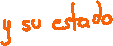 y su estado